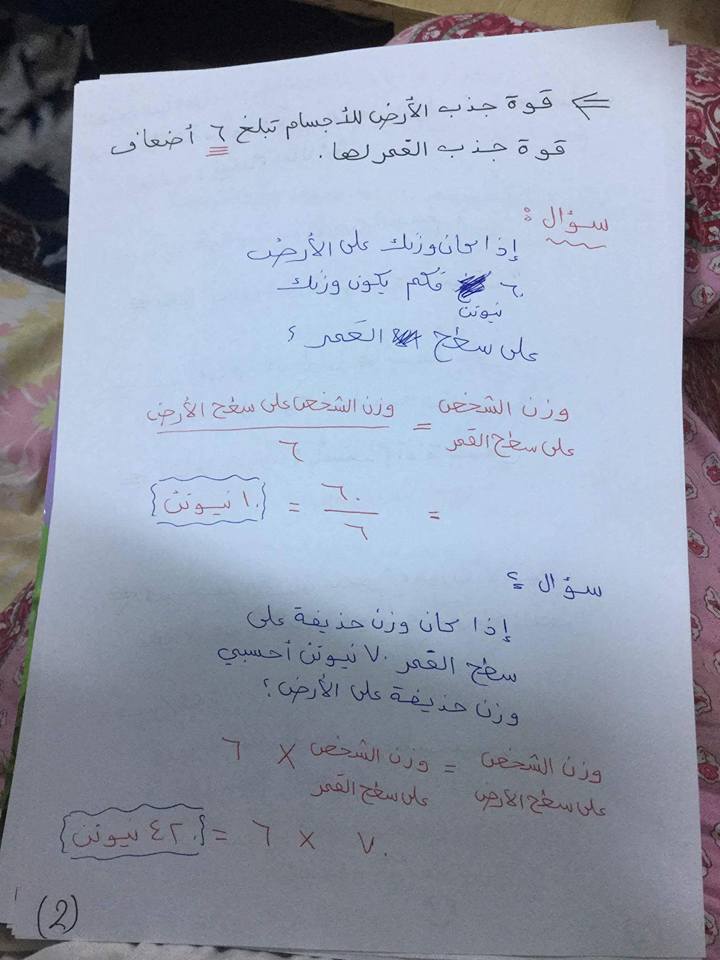 <= قوة جذب الأرض للأجسام تبلغ ٦ أضعاف
قوة جذب القمر لها.
سؤال:
إذا كان وزنك على الأرض
٦٠ نيوتن فكم يكون وزنك
على سطح القمر ؟
وزن الشخص على سطح القمر = وزن الشخص على سطح الأرض / ٦
= ٦٠ / ٦ = ١٠ نيوتن
سؤال ؟
إذا كان وزن حذيفة على
سطح القمر ٧٠ نيوتن أحسبي
وزن حذيفة على الأرض؟
وزن الشخص على سطح الأرض = وزن الشخص على سطح القمر × ٦
٧٠ × ٦ = ٤٢٠ نيوتن
(2)